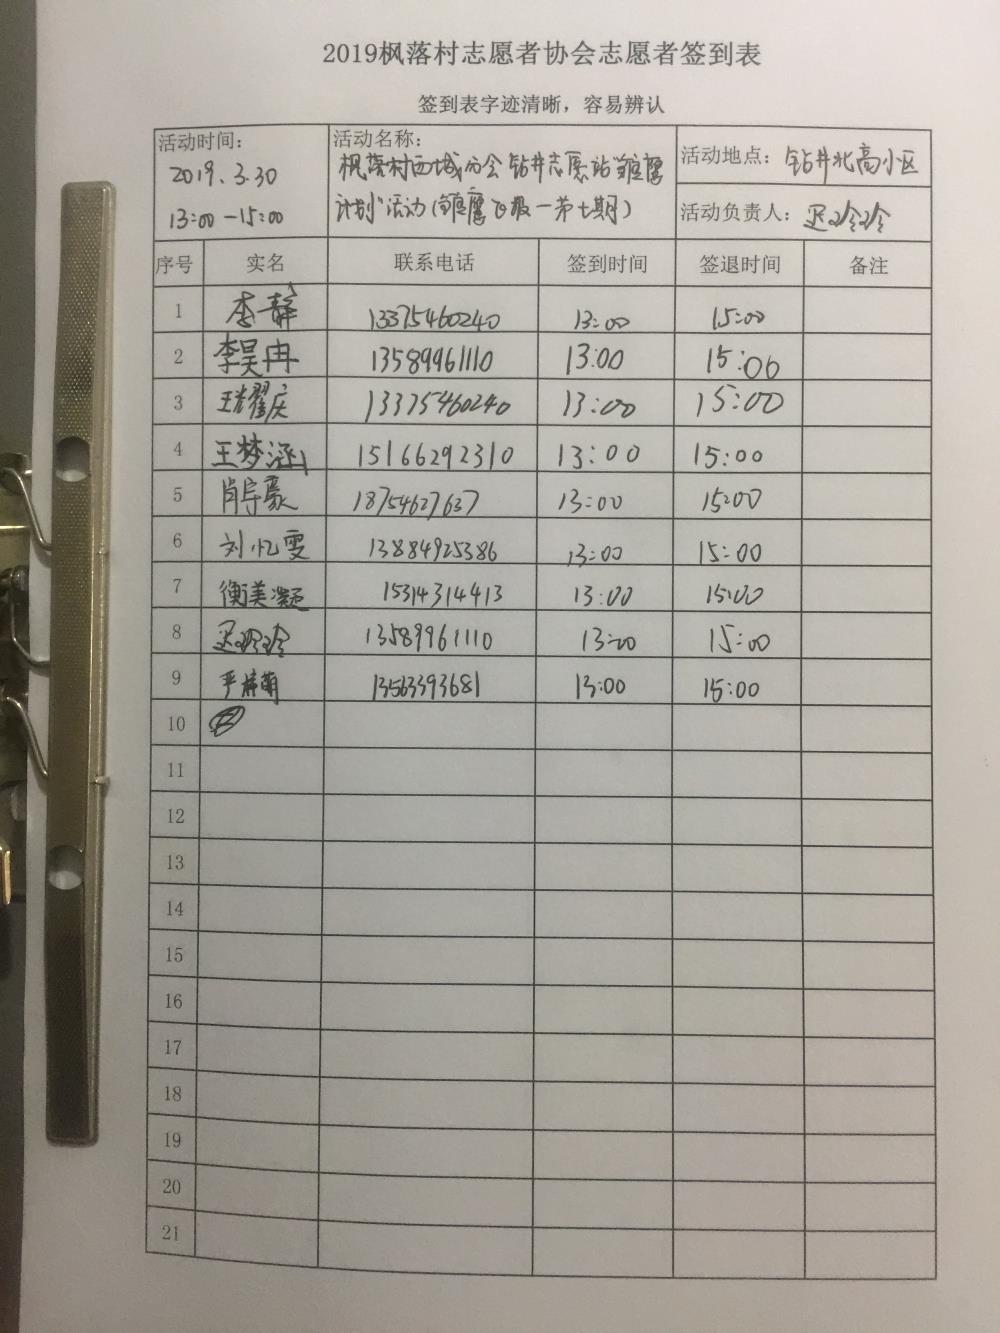 2019枫落村志愿者协会志愿者签到表
签到表字迹清晰，容易辨认
活动时间：
2019.3.30
13:00-15:00
活动名称：
枫落村西城分会钻井志愿站雏鹰
计划活动（雏鹰飞报一第七期）
活动地点：钻井北高小区
活动负责人：玲玲
序号 实名 联系电话 签到时间 签退时间 备注
1 李静 13375460240 13:00 15:00
2 李昊冉 13589961110 13:00 15:00
3 王耀庆 13375460240 13:00 15:00
4 王梦涵 15166292310 13:00 15:00
5 肖宇豪 18754627637 13:00 15:00
6 刘忆雯 13884925386 13:00 15:00
7 衡美凝 15314314413 13:00 15:00
8 玲玲 13589961110 13:00 15:00
9 严萌 13563393681 13:00 15:00
10
11
12
13
14
15
16
17
18
19
20
21